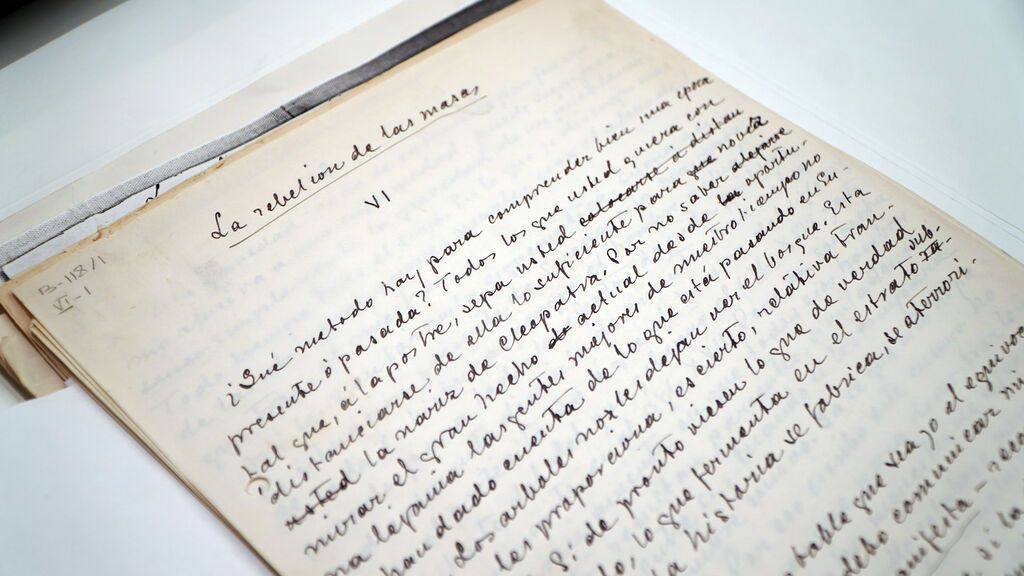 La rebelion de las masas
VI
B-118/1
VI-1
¿Qué metodo hay para comprender bien una época
presente ó pasada? Todos los que usted quiera con
tal que, á la postre, sepa usted a distan
distanciarse de ella lo suficiente para que no vea
usted la nariz de Cleopatra. Por no saber alejarse
mirar el gran hecho de actual desde la oportu-
na lejanía las gentes mejores de nuestro tiempo no
han dado cuenta de lo que está pasando en su
Los arboles no les dejan ver el bosque. Esta
les proporciona, es cierto, relativa tran-
Si de pronto viesen lo que de verdad
lo que fermenta en el estrato sub-
historia se fabrica, se aterrori-
table que vea yo el equivo
debo comunicar mi